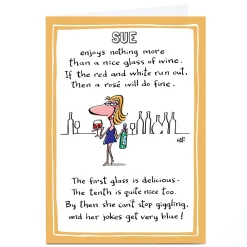 SUE
enjoys nothing more
than a nice glass of wine.
If the red and white run out,
then a rosé will do fine.
The first glass is delicious -
The tenth is quite nice too.
By then she can't stop giggling,
and her jokes get very blue!